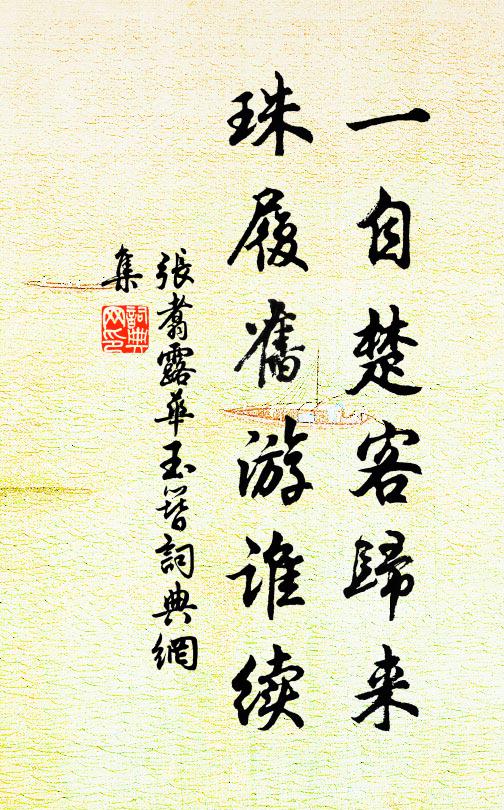 一自楚客歸来
珠履舊游谁续
張翥露華玉簪詞典網
集
詞典网印